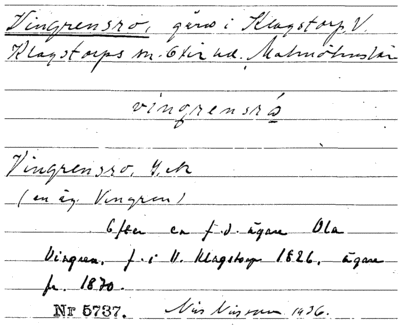 Vingrensro, gård i Klagstorp, V.
Klagstorps sn. Oxie hd. Malmöhus län
vingrensró
Vingrensro, G.M
(en äg. Vingren)
Efter en f.d. ägare Ola
Vingren, f. i V. Klagstorp 1826, ägare
fr. 1870.
Nr 5737. Nils Nilsson 1936.